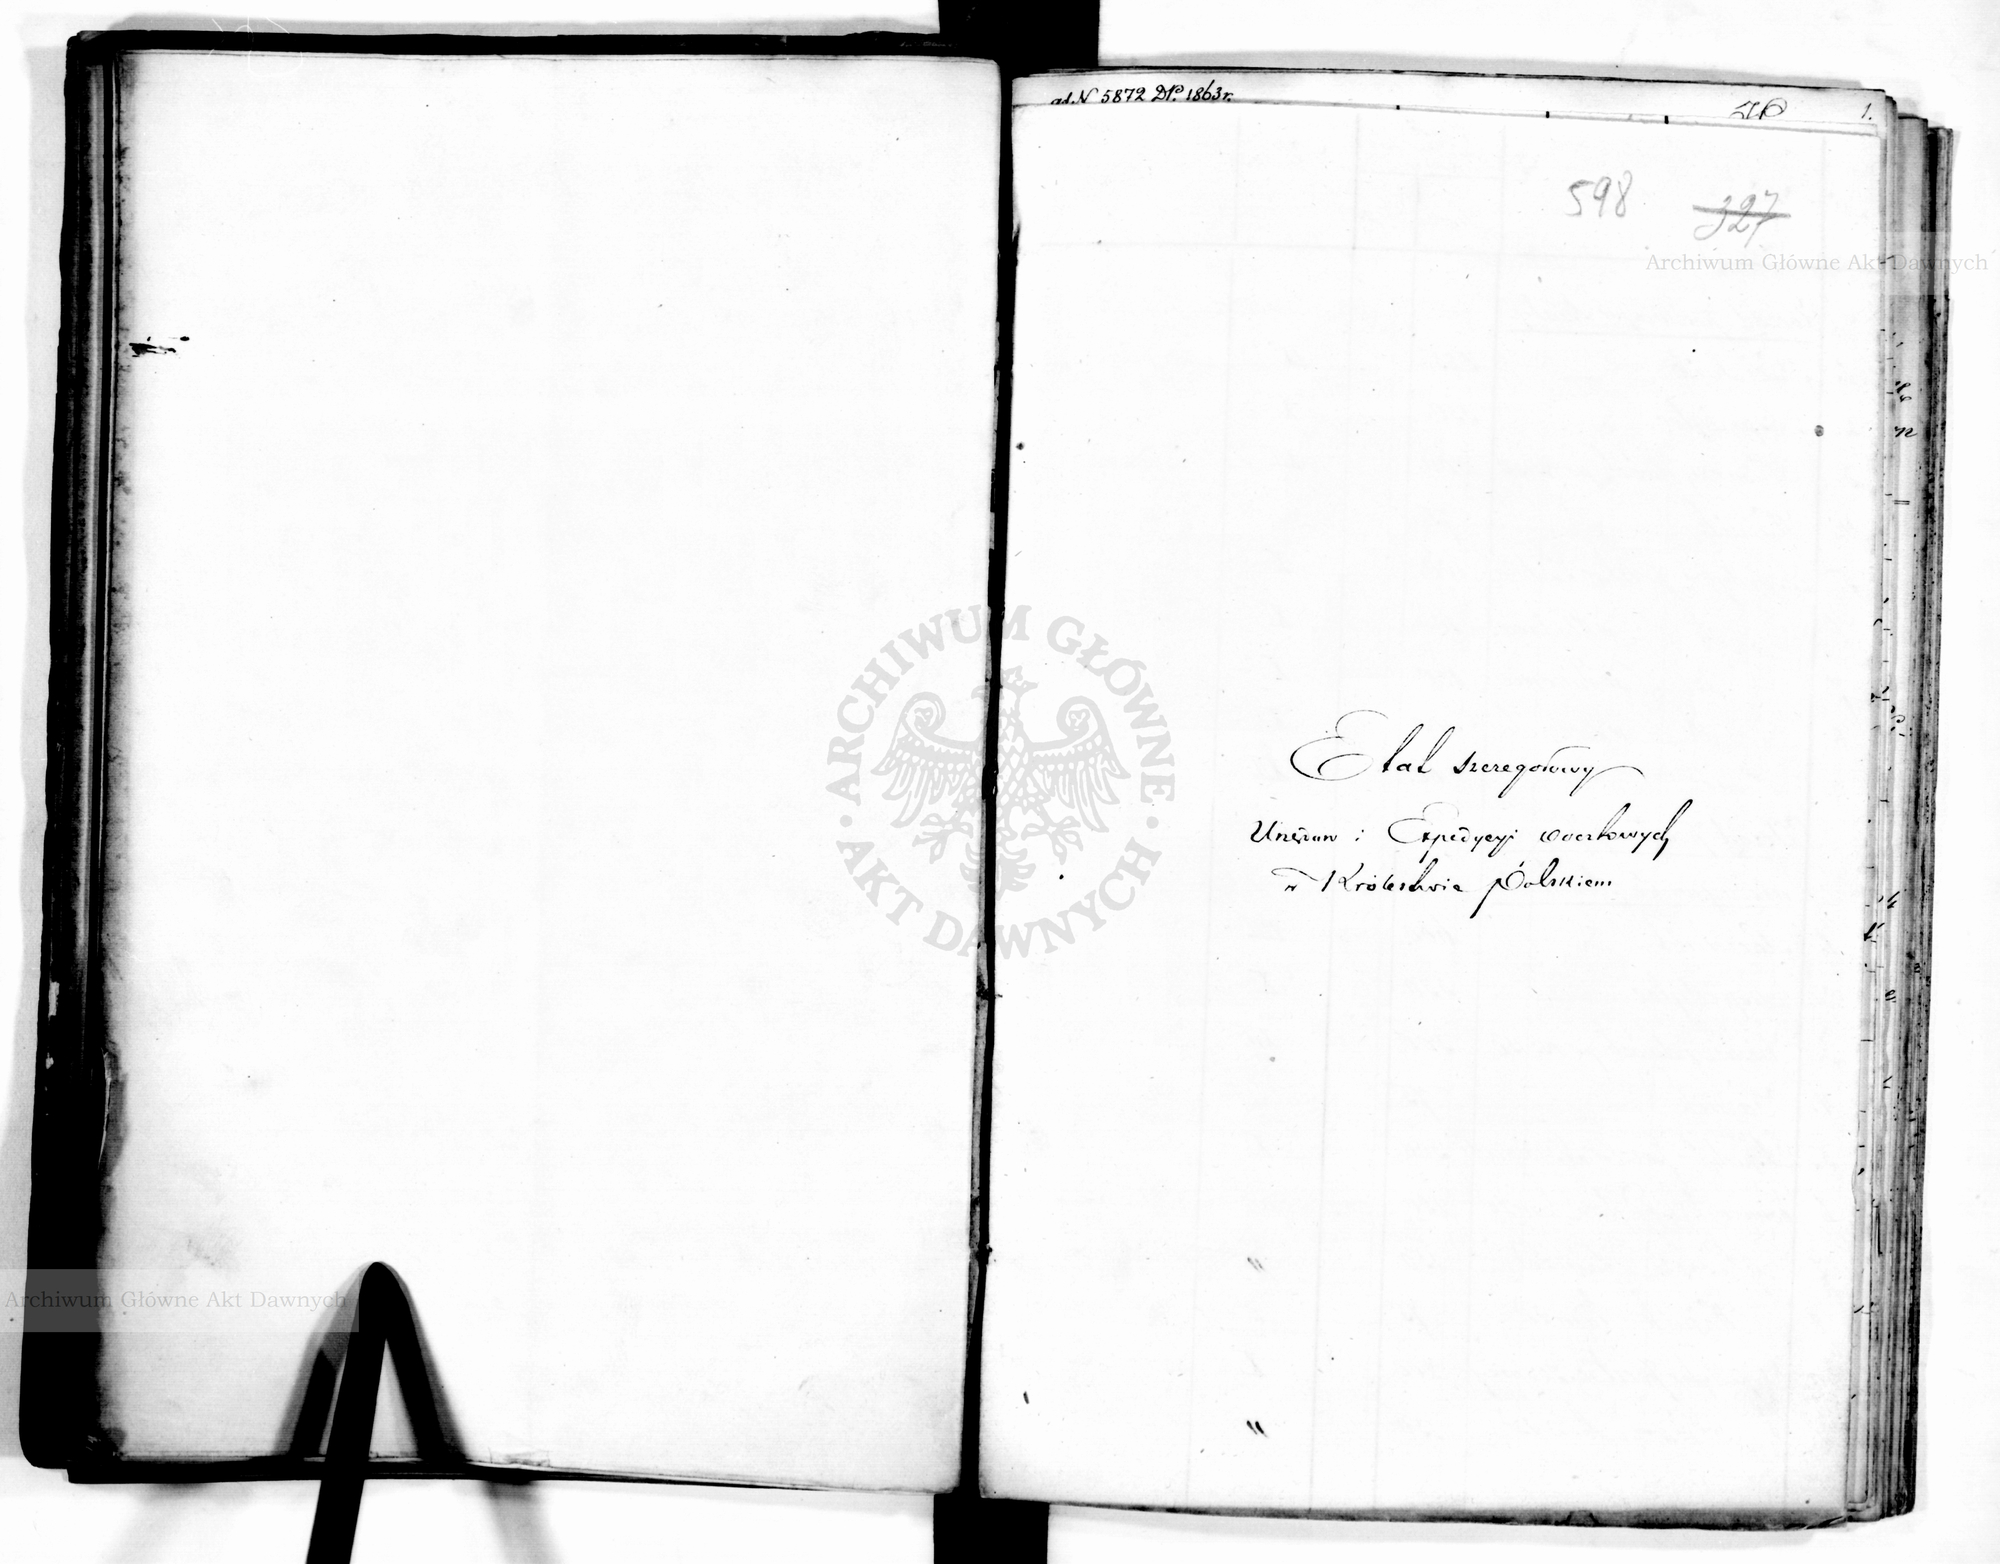 ad. N 5872 DP. 1863 r.
1.
598 327
Archiwum Główne Akt Dawnych
ARCHIWUM GŁÓWNE
AKT DAWNYCH
Etat szczegołowy
Urzędow i Expedycyi Pocztowych
w Królestwie Polskiem
Archiwum Główne Akt Dawnych